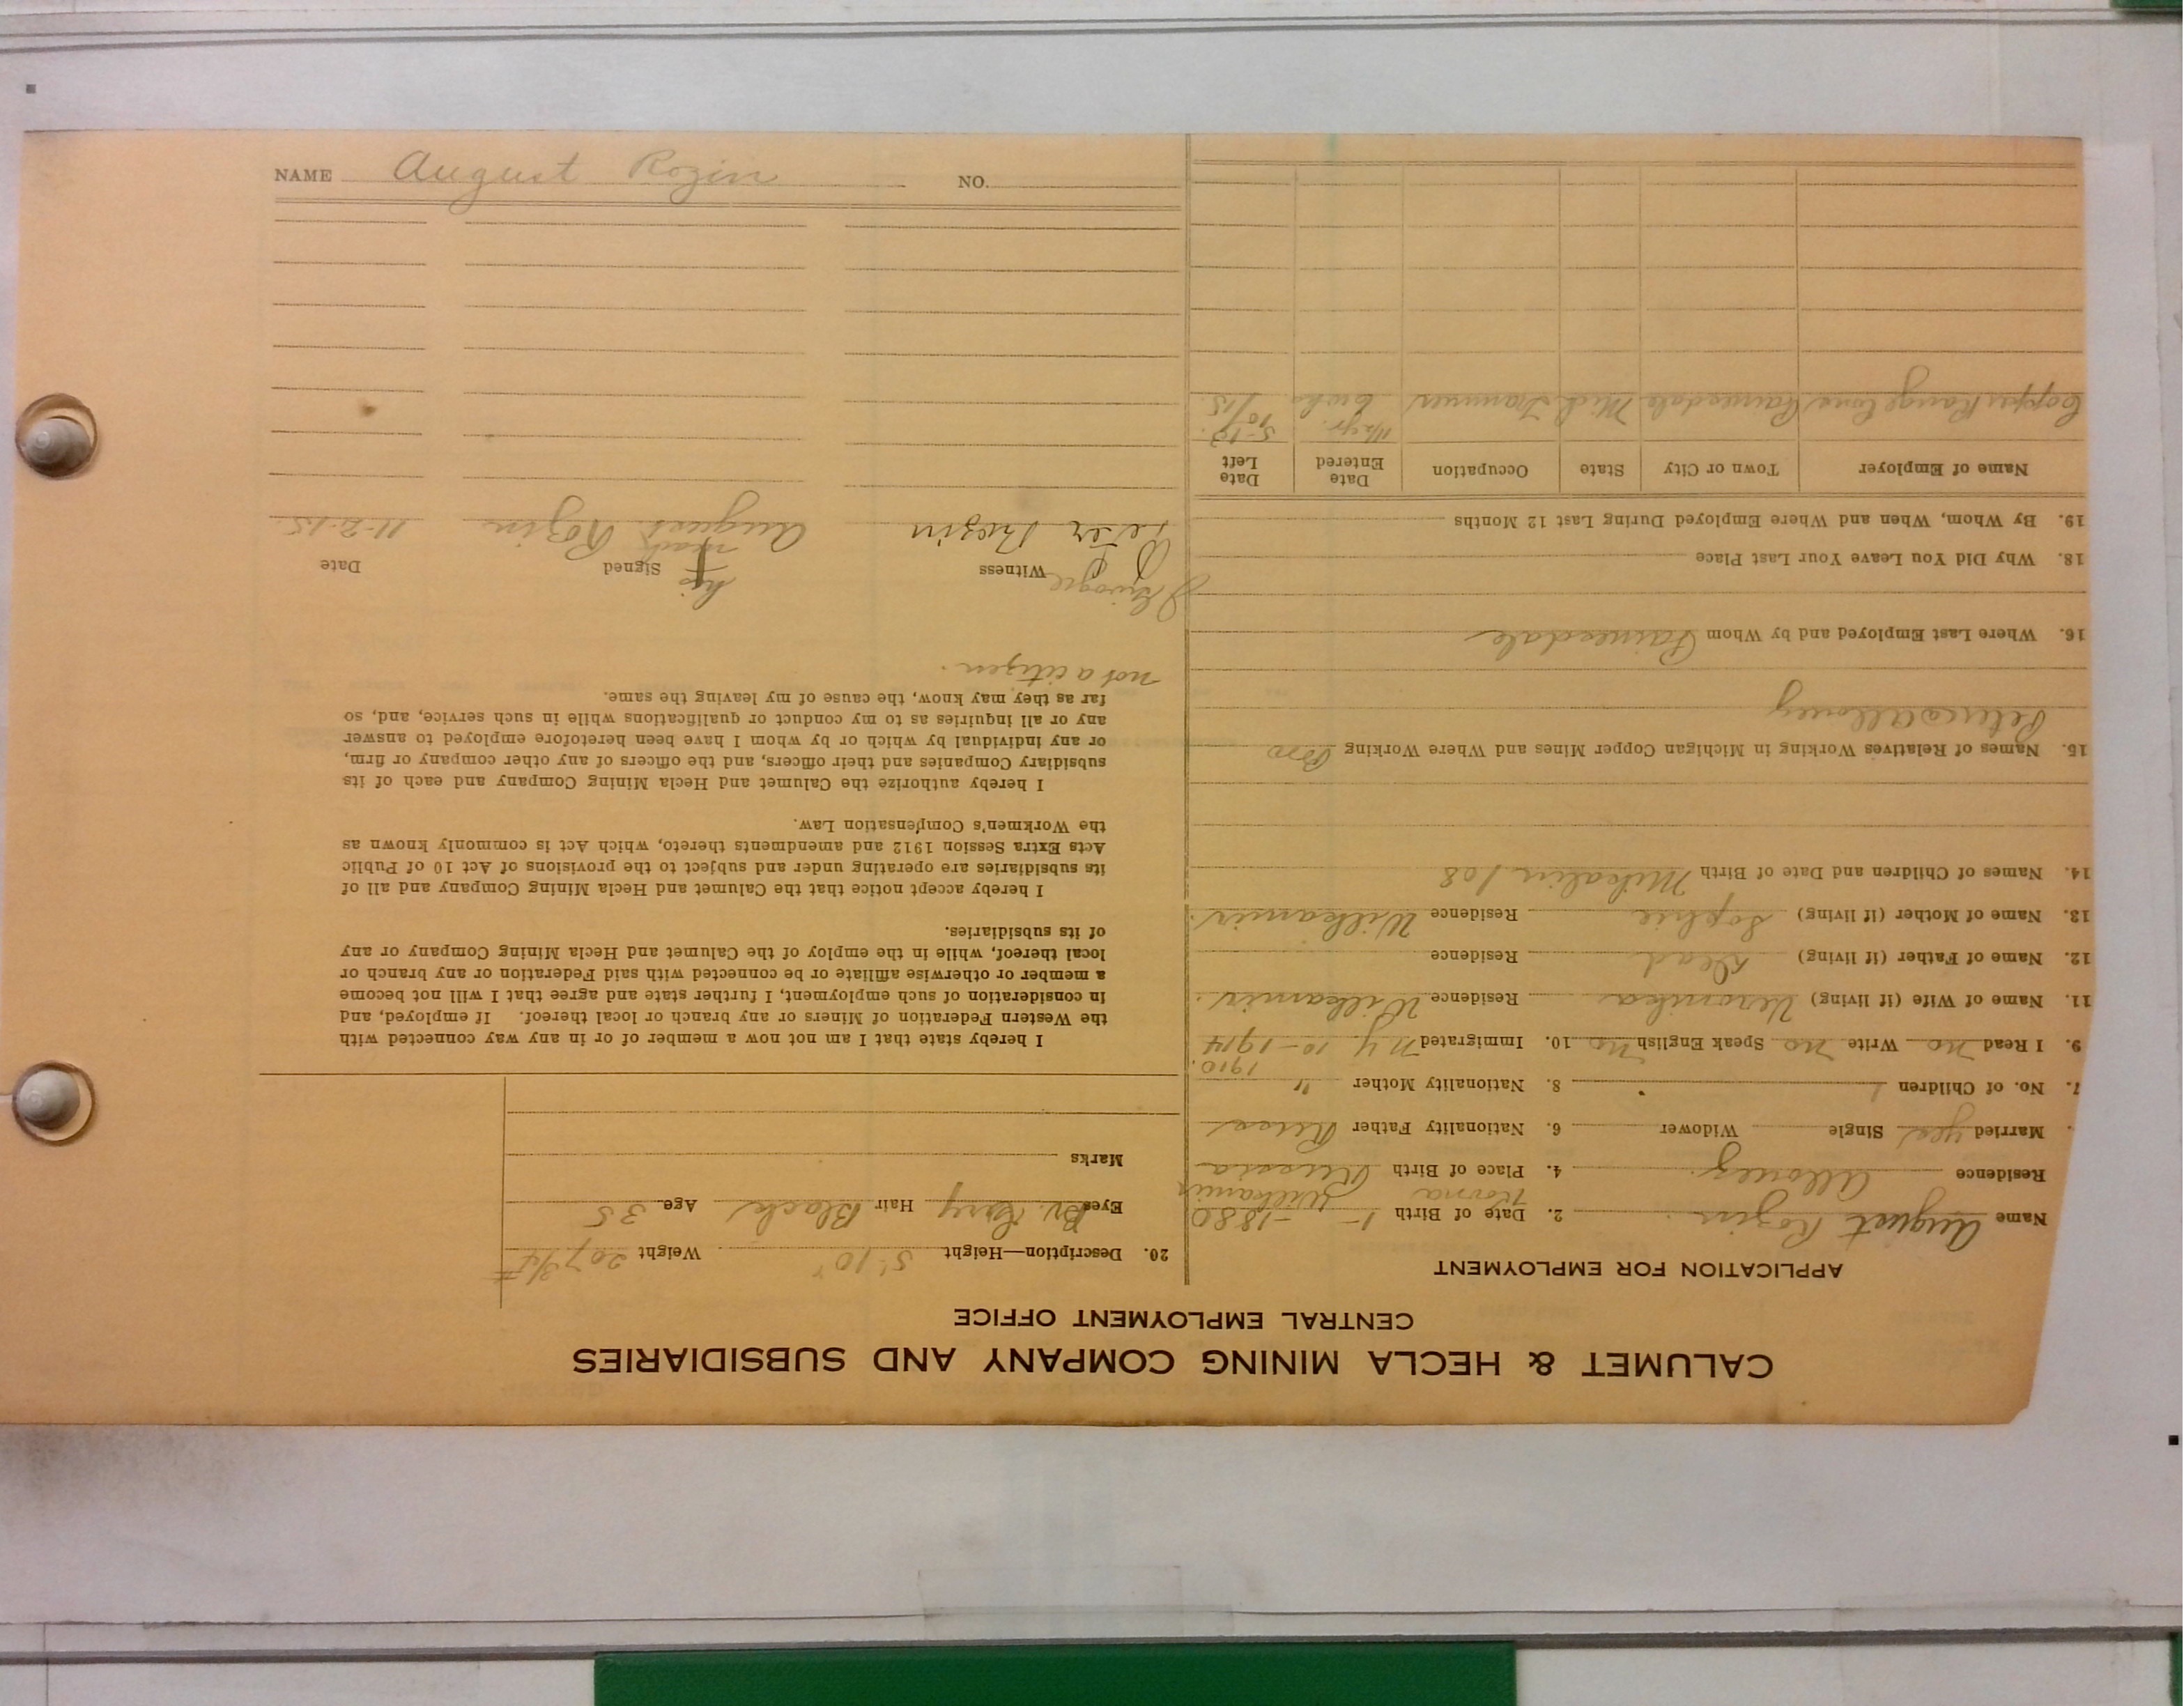 CALUMET & HECLA MINING COMPANY AND SUBSIDIARIES
CENTRAL EMPLOYMENT OFFICE
APPLICATION FOR EMPLOYMENT
Name August Rozin 2. Date of Birth 1- -1880
Kovna Wilkamir
Residence Allouez 4. Place of Birth Russia
Married yes Single Widower 6. Nationality Father Russ
7. No. of Children 1 8. Nationality Mother "
1910.
9. I Read no Write no Speak English no 10. Immigrated N Y 10-1914
11. Name of Wife (if living) Veronika Residence Wilkamir.
12. Name of Father (if living) Dead Residence
13. Name of Mother (if living) Sophie Residence Wilkamir.
14. Names of Children and Date of Birth Mikalin 1 08
15. Names of Relatives Working in Michigan Copper Mines and Where Working Bro
Peter Allouez
16. Where Last Employed and by Whom Painesdale
18. Why Did You Leave Your Last Place
19. By Whom, When and Where Employed During Last 12 Months
Name of Employer Town or City State Occupation Date Entered Date Left
Copper Range Cons Painesdale Mich Trammer 1 1/2 yr. 6 wks 5-13. 10/15
20. Description—Height 5' 10" Weight 207 3/4 #
Eyes Br. Grey Hair Black Age 35
Marks
I hereby state that I am not now a member of or in any way connected with
the Western Federation of Miners or any branch or local thereof. If employed, and
in consideration of such employment, I further state and agree that I will not become
a member or otherwise affiliate or be connected with said Federation or any branch or
local thereof, while in the employ of the Calumet and Hecla Mining Company or any
of its subsidiaries.
I hereby accept notice that the Calumet and Hecla Mining Company and all of
its subsidiaries are operating under and subject to the provisions of Act 10 of Public
Acts Extra Session 1912 and amendments thereto, which Act is commonly known as
the Workmen's Compensation Law.
I hereby authorize the Calumet and Hecla Mining Company and each of its
subsidiary Companies and their officers, and the officers of any other company or firm,
or any individual by which or by whom I have been heretofore employed to answer
any or all inquiries as to my conduct or qualifications while in such service, and, so
far as they may know, the cause of my leaving the same.
not a citizen.
Witness Signed Date
his
mark
Peter Rozin August Rozin 11-2-15.
NAME August Rozin NO.